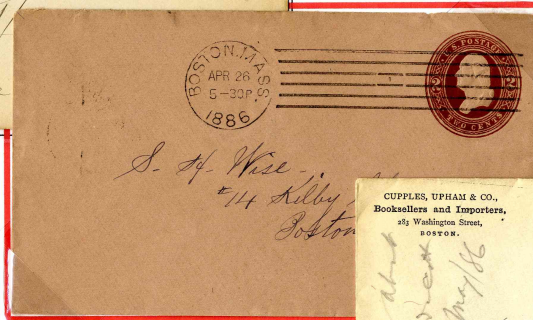 BOSTON. MASS.
APR 26
5-30P
1886
U.S. POSTAGE
2 2
TWO CENTS
S. H. Wise.
#14 Kilby
Boston
CUPPLES, UPHAM & CO.,
Booksellers and Importers,
283 Washington Street,
BOSTON.
May/86